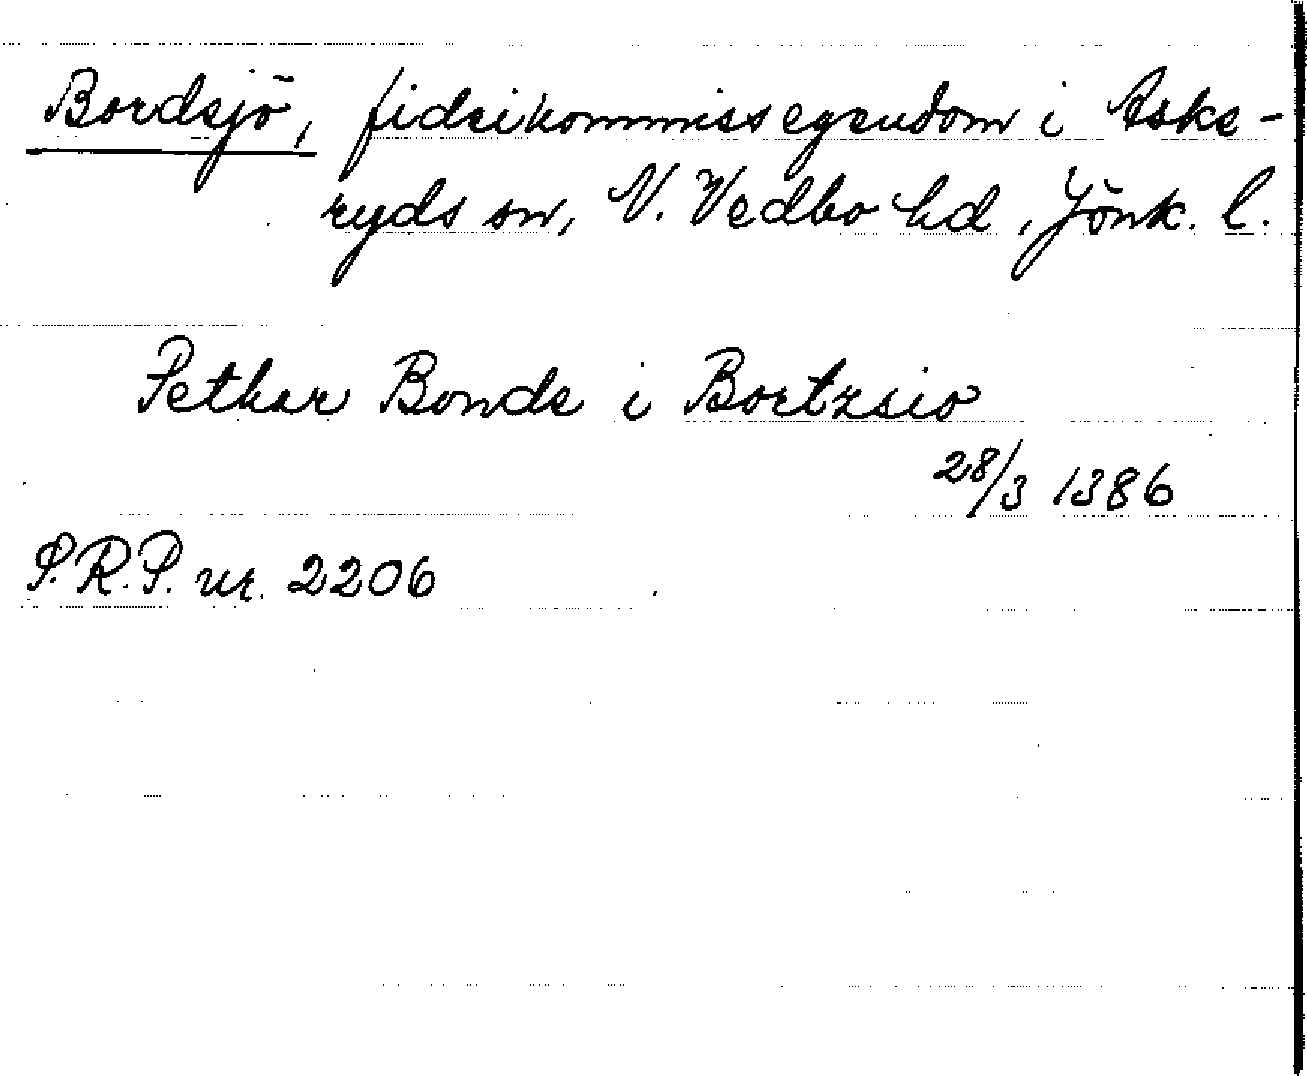 Bordsjö, fideikommissegendom i Aske-
ryds sn, N. Vedbo hd, Jönk. l.
Pethar Bonde i Bortzsio
28/3 1386
S.R.P. nr. 2206